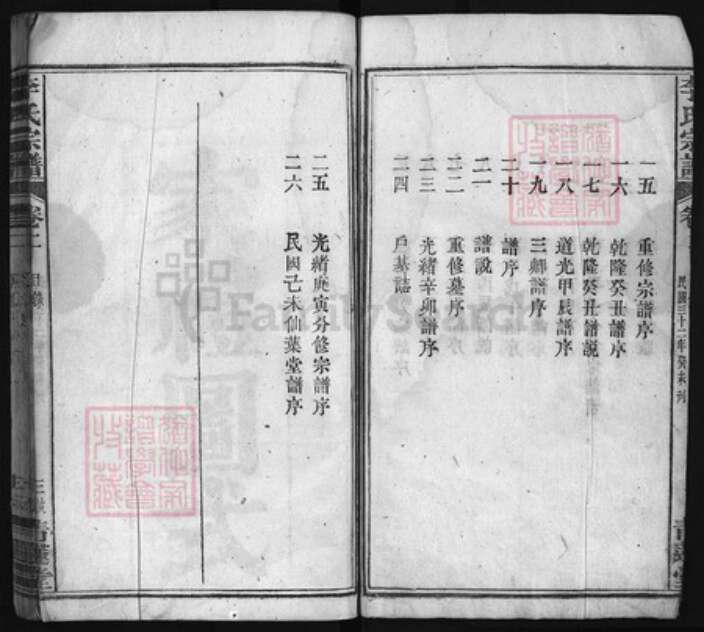 李氏宗譜
民國三十二年癸未刋
一五 重修宗譜序
一六 乾隆癸丑譜序
一七 乾隆癸丑譜說
一八 道光甲辰譜序
一九 三鄉譜序
二十 譜序
二一 譜說
二二 重修墓序
二三 光緒辛卯譜序
二四 戶墓誌
二五 光緒庚寅分修宗譜序
二六 民國己未仙葉堂譜序
李氏宗譜
FamilySearch